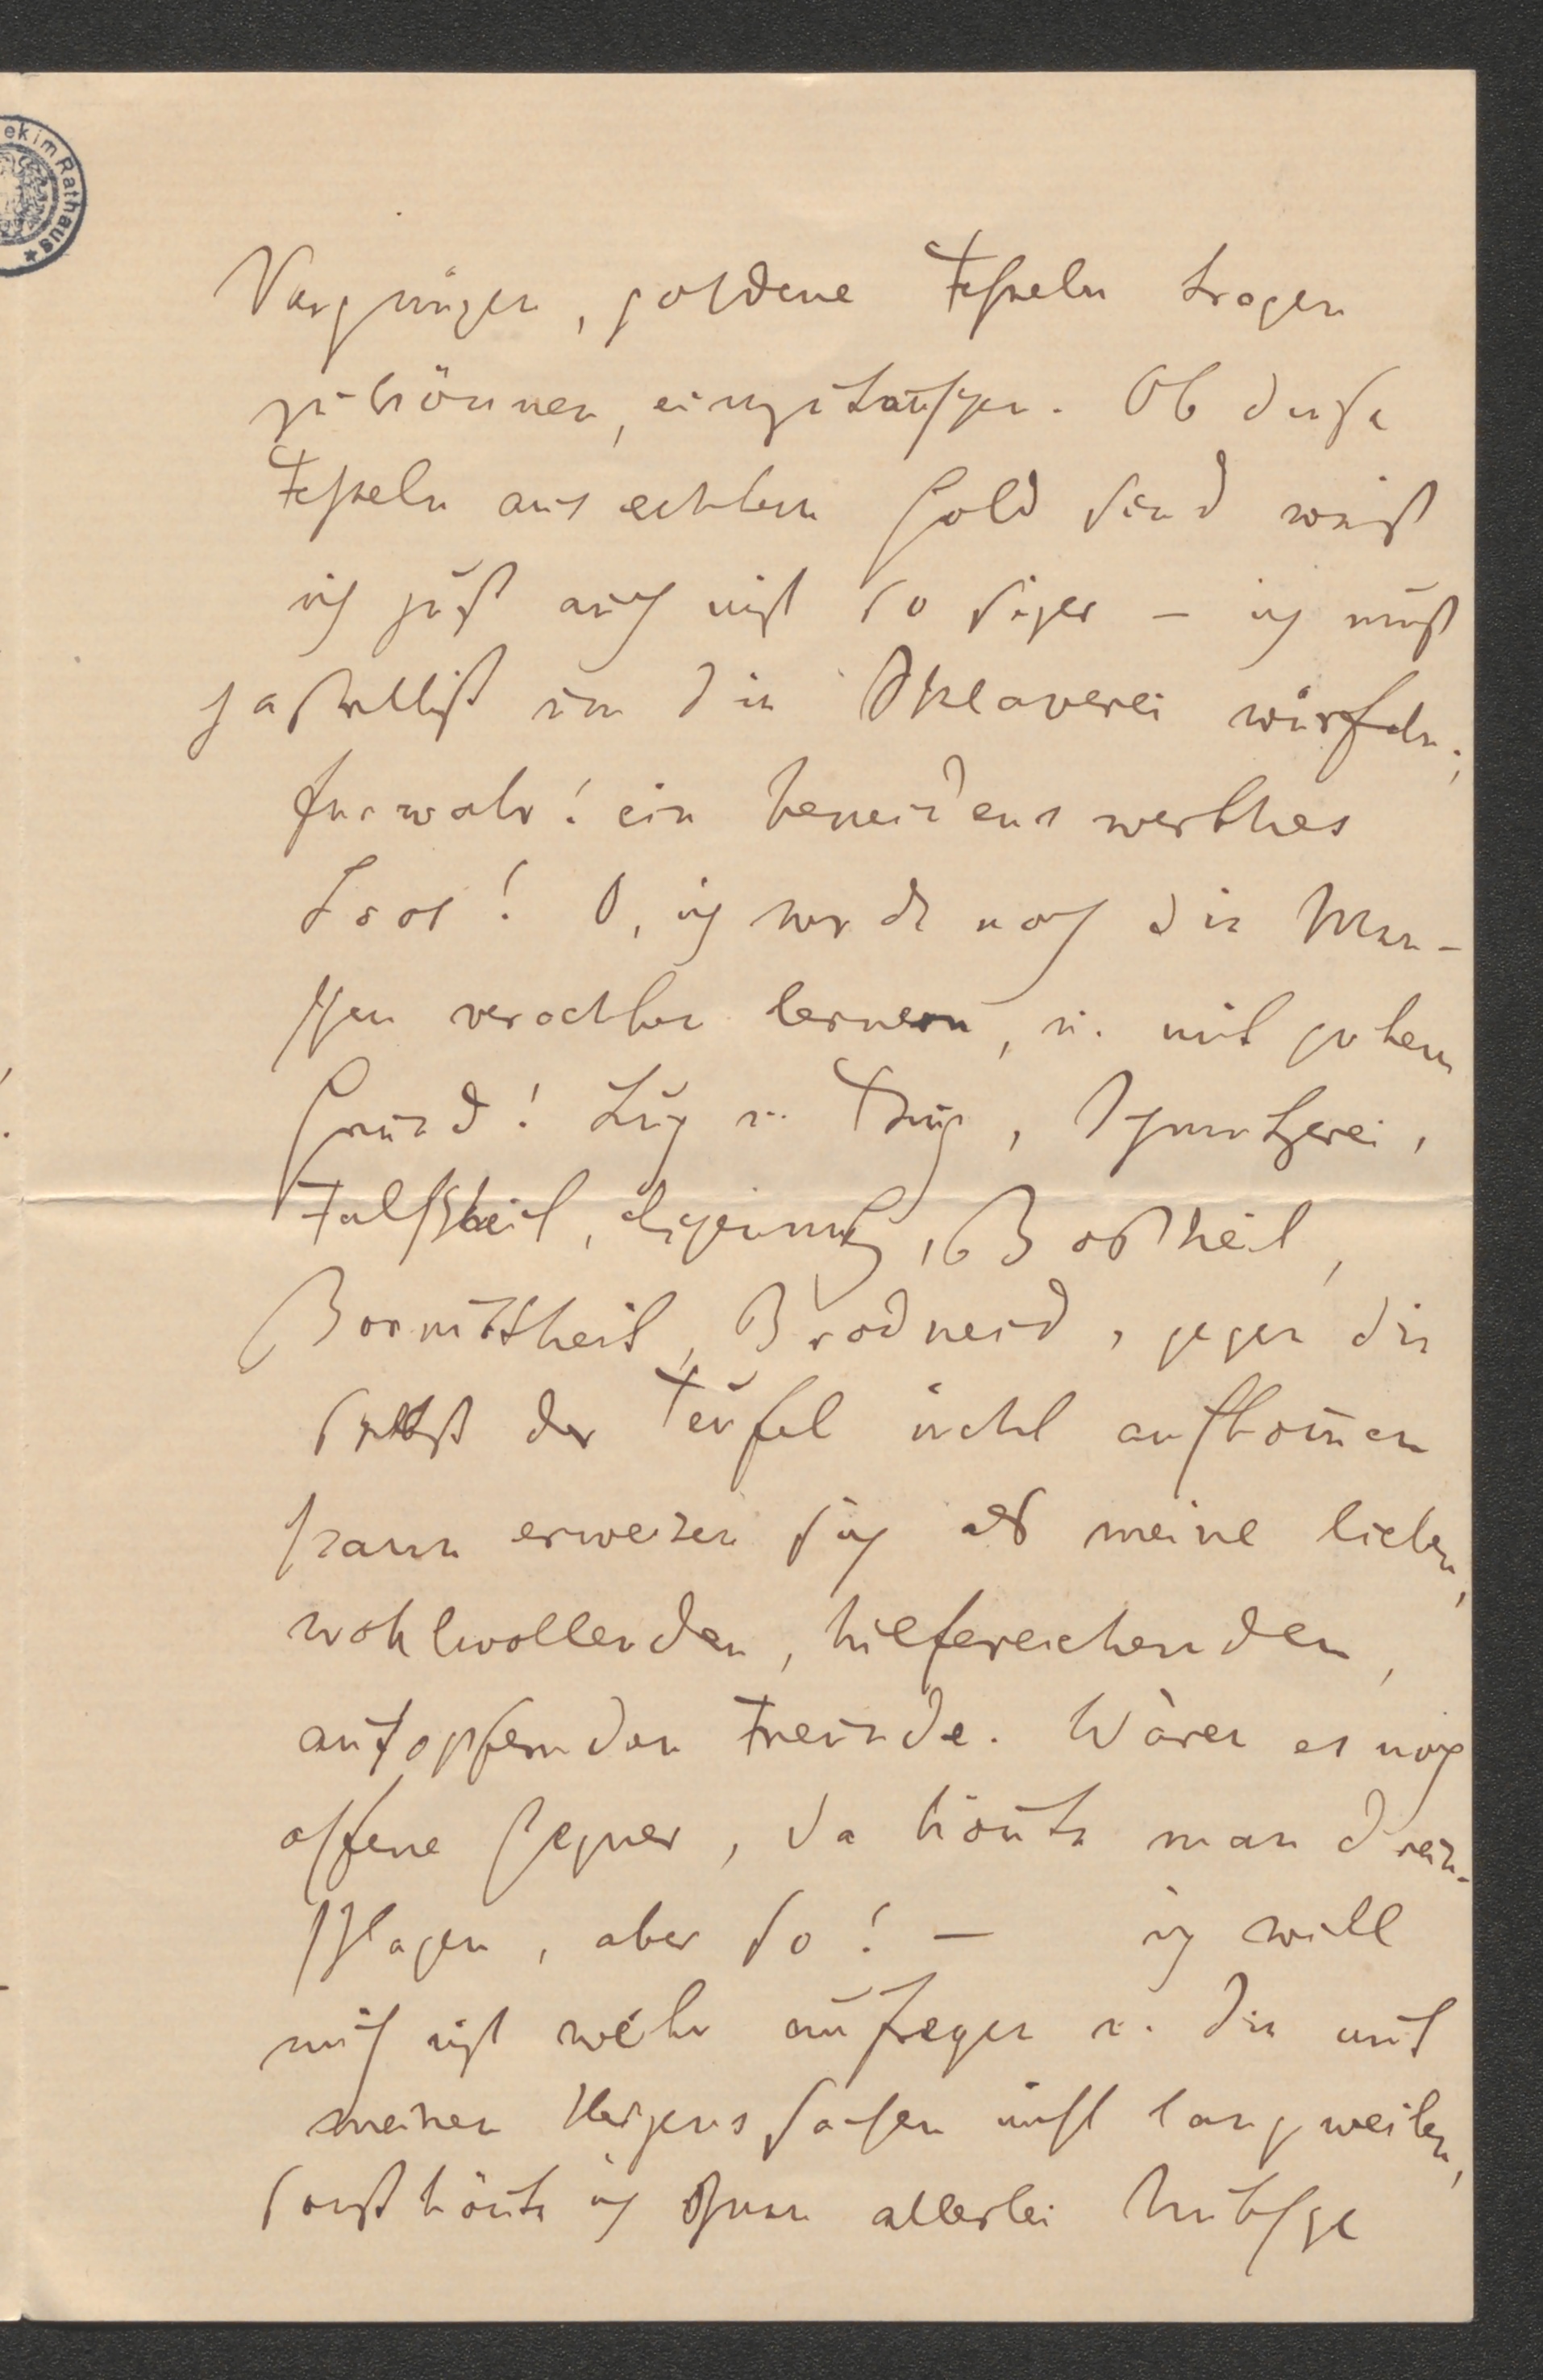 ek im Rathaus ★
Vergnügen, goldene Fesseln tragen
zu können, einzutauschen. Ob diese
Fesseln aus echtem Gold sind weiß
ich jetzt auch nicht so sicher – ich muß
ja selbst um die Sklaverei würfeln;
fürwahr! ein beneidenswerthes
Loos! O, ich werde noch die Men-
schen verachten lernen, u. mit gutem
Grund! Lug u. Trug, Schmutzerei,
Falschheit, Eigennutz, Bosheit,
Bornirtheit, Brodneid, gegen die
selbst der Teufel nicht aufkom̄en
kann erweisen sich als meine lieben,
wohlwollenden, hilfereichenden,
aufopfernden Freunde. Wären es noch
offene Gegner, da kön̄te man drein-
schlagen, aber so! – ich will
mich nicht mehr aufregen u. Dich mit
meinen Herzenssachen nicht langweilen,
sonst kön̄te ich Ihnen allerlei hübsche